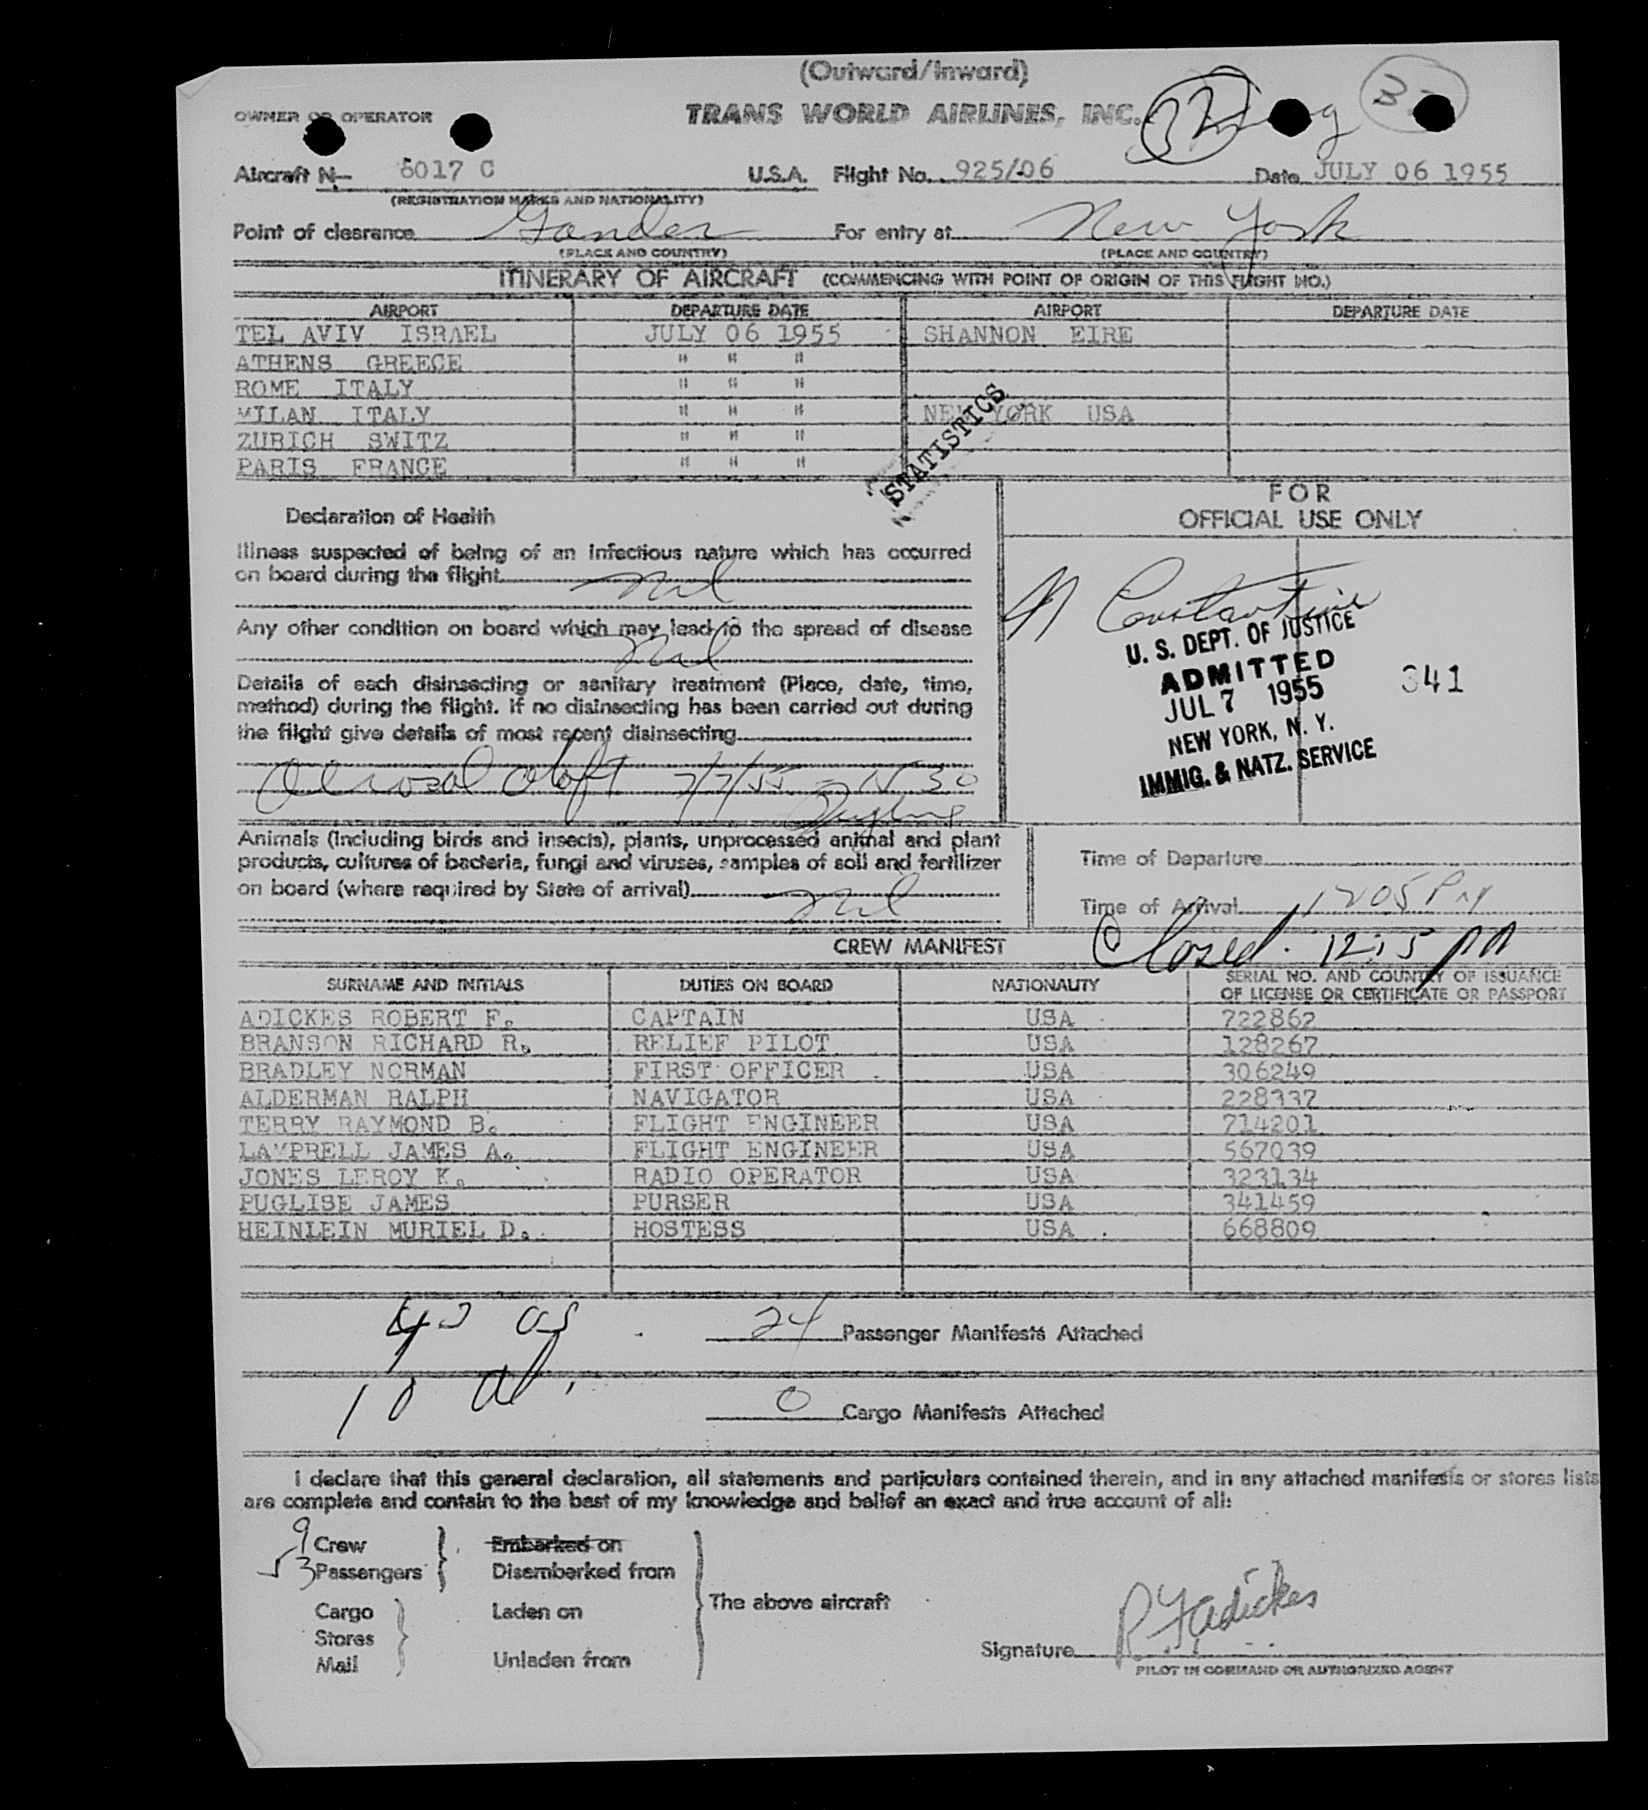 (Outward/Inward)
OWNER OR OPERATOR TRANS WORLD AIRLINES, INC.
Aircraft N- 6017 C U.S.A. Flight No. 925/06 Date JULY 06 1955
(REGISTRATION MARKS AND NATIONALITY)
Point of clearance Gander For entry at New York
(PLACE AND COUNTRY) (PLACE AND COUNTRY)
ITINERARY OF AIRCRAFT (COMMENCING WITH POINT OF ORIGIN OF THIS FLIGHT NO.)
AIRPORT DEPARTURE DATE AIRPORT DEPARTURE DATE
TEL AVIV ISRAEL JULY 06 1955 SHANNON EIRE
ATHENS GREECE " " "
ROME ITALY " " "
MILAN ITALY " " " NEW YORK USA
ZURICH SWITZ " " "
PARIS FRANCE " " "
STATISTICS
FOR
OFFICIAL USE ONLY
Declaration of Health
Illness suspected of being of an infectious nature which has occurred
on board during the flight nil
Any other condition on board which may lead to the spread of disease
nil
Details of each disinsecting or sanitary treatment (Place, date, time,
method) during the flight. If no disinsecting has been carried out during
the flight give details of most recent disinsecting
Aerosol aloft 7/7/55
N Constantine
U. S. DEPT. OF JUSTICE
ADMITTED
JUL 7 1955
NEW YORK, N. Y.
IMMIG. & NATZ. SERVICE
341
Animals (including birds and insects), plants, unprocessed animal and plant
products, cultures of bacteria, fungi and viruses, samples of soil and fertilizer
on board (where required by State of arrival) nil
Time of Departure
Time of Arrival 1205 PM
Closed 12:15 PM
CREW MANIFEST
SURNAME AND INITIALS DUTIES ON BOARD NATIONALITY SERIAL NO. AND COUNTRY OF ISSUANCE
OF LICENSE OR CERTIFICATE OR PASSPORT
ADICKES ROBERT F. CAPTAIN USA 722862
BRANSON RICHARD R. RELIEF PILOT USA 128267
BRADLEY NORMAN FIRST OFFICER USA 306249
ALDERMAN RALPH NAVIGATOR USA 228337
TERRY RAYMOND B. FLIGHT ENGINEER USA 714201
LAMPRELL JAMES A. FLIGHT ENGINEER USA 567039
JONES LEROY K. RADIO OPERATOR USA 323134
PUGLISE JAMES PURSER USA 341459
HEINLEIN MURIEL D. HOSTESS USA 668809
24 Passenger Manifests Attached
10 al.
0 Cargo Manifests Attached
I declare that this general declaration, all statements and particulars contained therein, and in any attached manifests or stores lists
are complete and contain to the best of my knowledge and belief an exact and true account of all:
9 Crew Embarked on
53 Passengers Disembarked from
The above aircraft
Cargo Laden on
Stores
Mail Unladen from
Signature R F Adickes
PILOT IN COMMAND OR AUTHORIZED AGENT